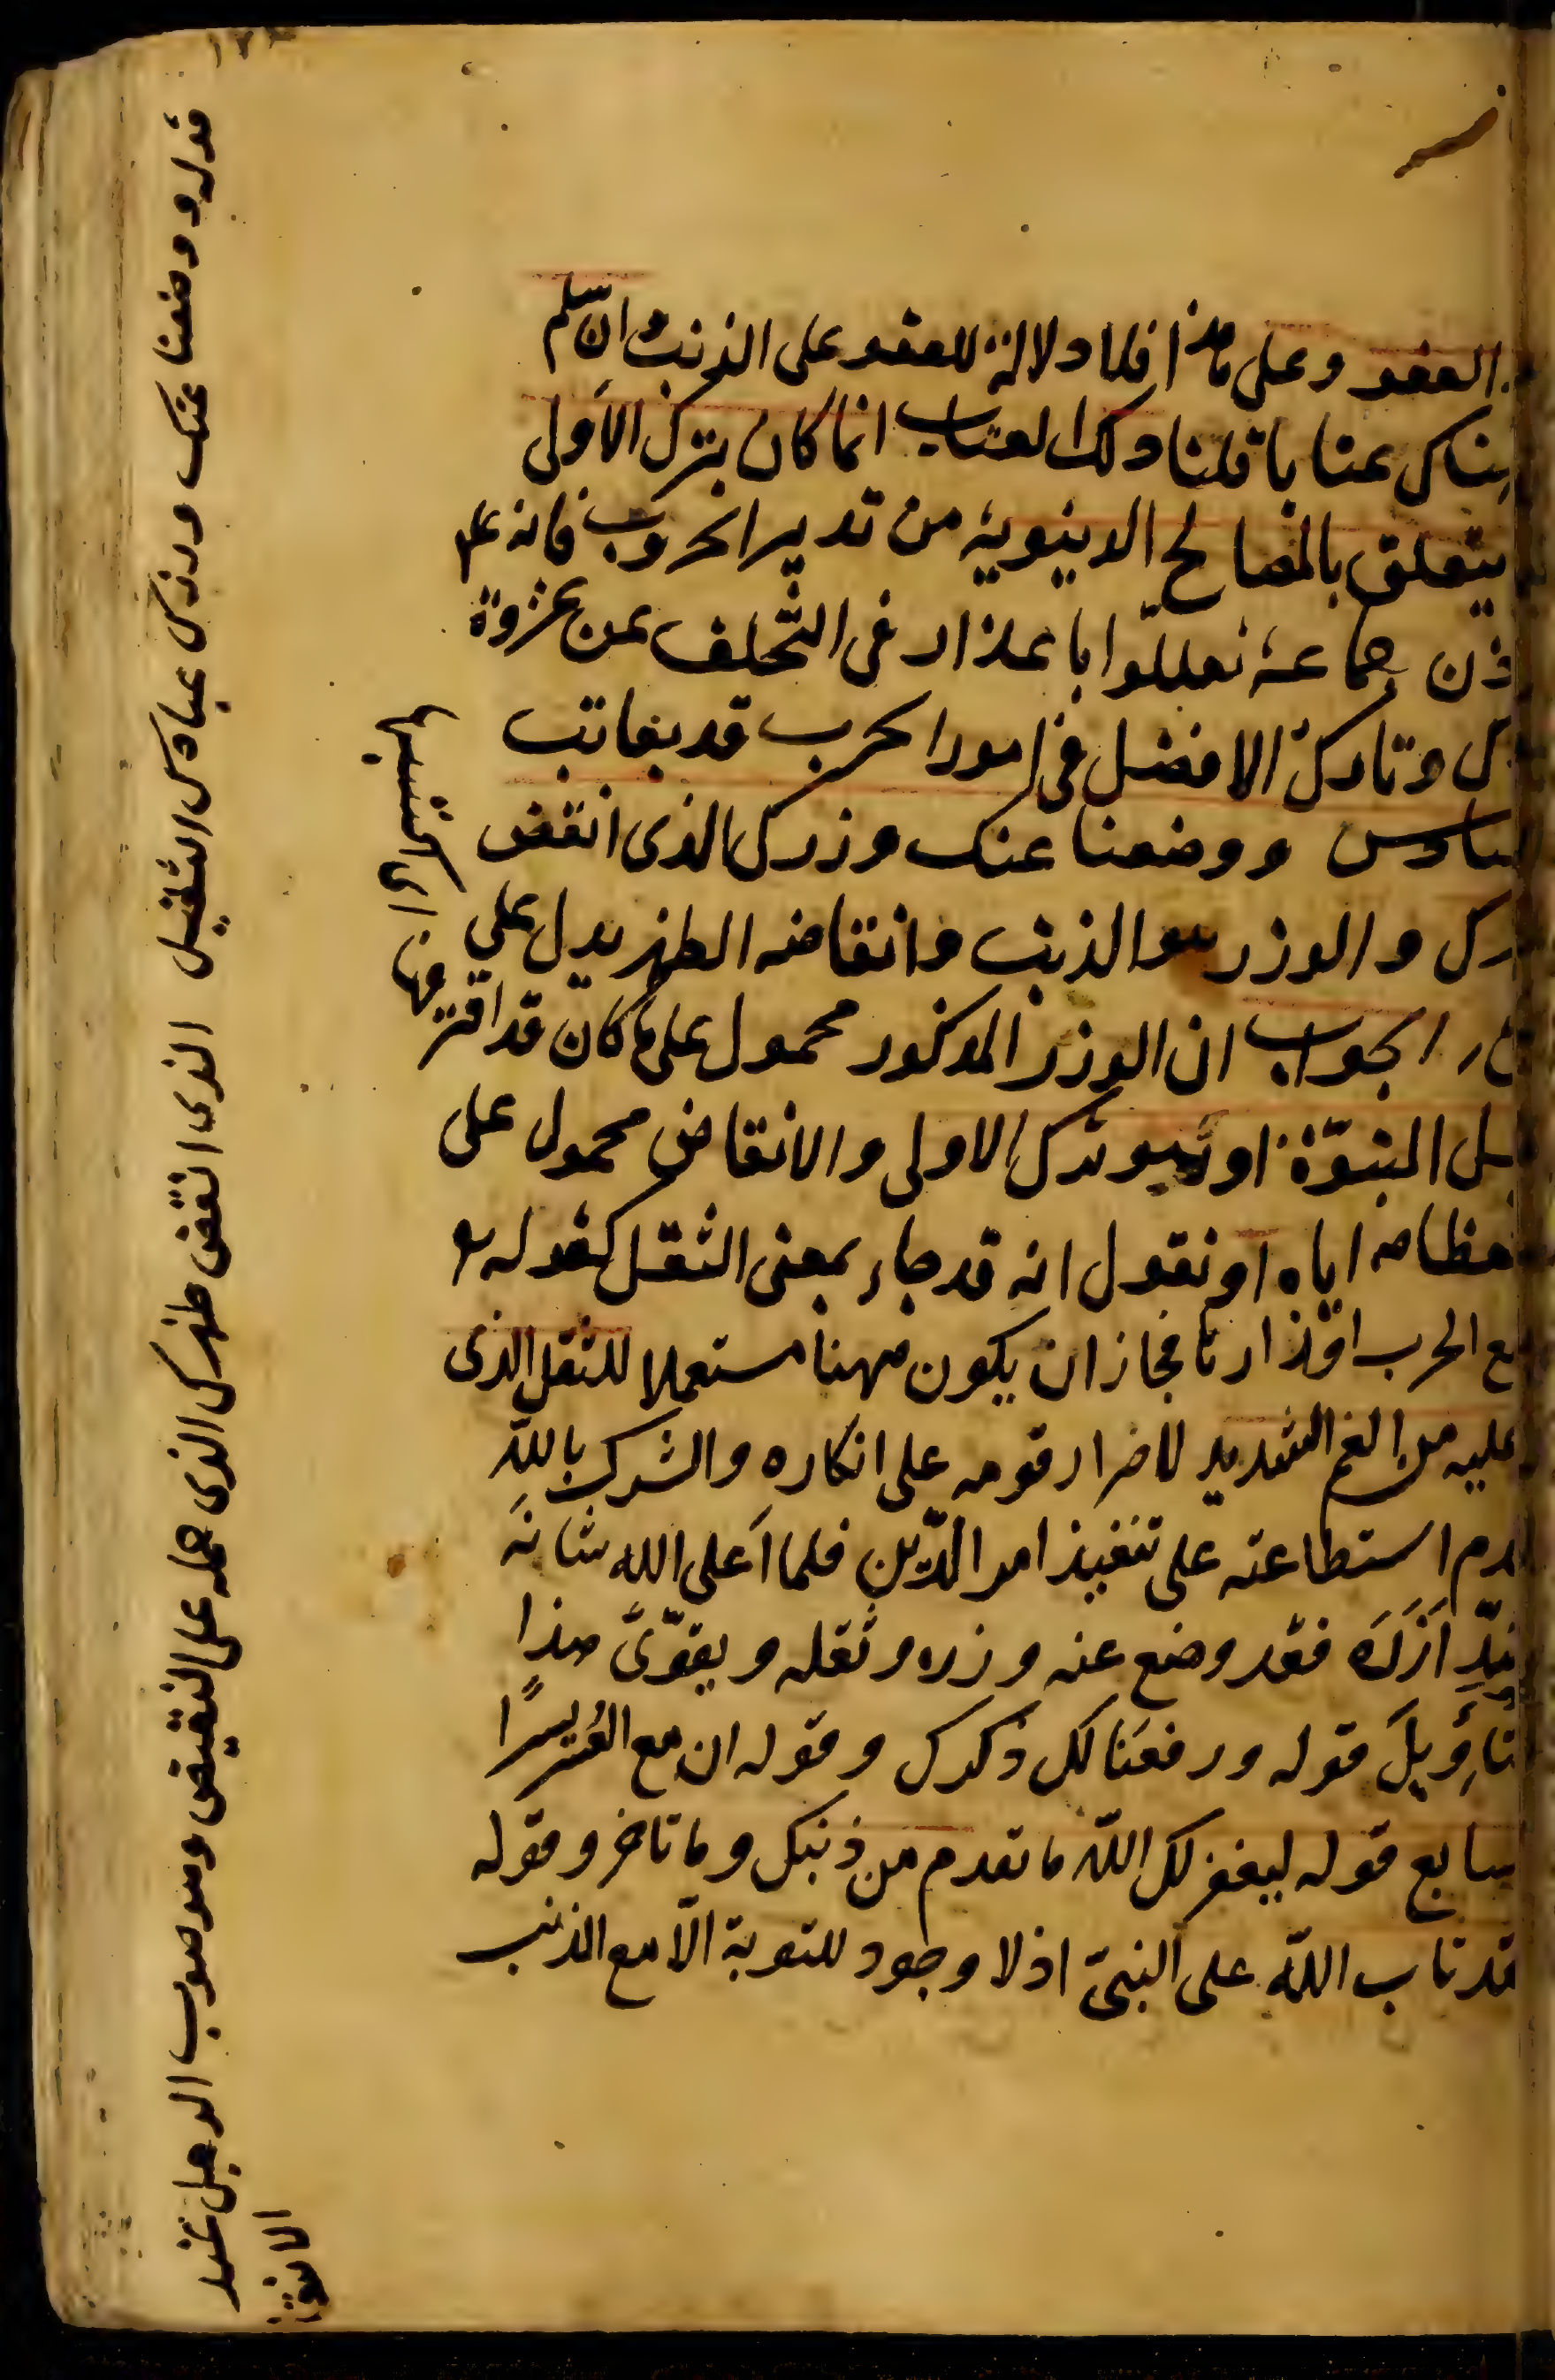 العفو وعلى هذا فلا دلالة للعفو على الذنب وان سلم
هناك عتابا قلنا ذلك العتاب انما كان بترك الاولى
يتعلق بالمصالح الدنيوية من تدبير الحروب فانه علم
ذن جماعة تعللوا باعذار فى التخلف عن غزوة
ك وتارك الافضل فى امور الحرب قد يعاتب
السادس ووضعنا عنك وزرك الذى انقض
ظهرك والوزر هو الذنب وانقاضه الظهر يدل على
الجواب ان الوزر المذكور محمول على ما كان قد اقترفه
قبل النبوّة او هو ترك الاولى والانقاض محمول على
استعظامه اياه او نقول انه قد جاء بمعنى الثقل كقوله تع
تضع الحرب اوزارها فجاز ان يكون ههنا مستعملا للثقل الذى
عليه من الغم الشديد لاصرار قومه على انكاره والشرك بالله
عدم استطاعته على تنفيذ امر الدّين فلما اَعلى الله شانَه
شدّ اَزْرَه فقد وضع عنه وزره وثقله ويقوّى هذا
التأويلَ قوله ورفعنا لك ذكرك وقوله ان مع العُسر يسرًا
السابع قوله ليغفر لك الله ما تقدم من ذنبك وما تاخر وقوله
لقد تاب الله على النبى اذ لا وجود للتوبة الّا مع الذنب
قوله ووضعنا عنك وزرك عبأك الثقيل الذى انقض ظهرك الذى حمله على النقيض وهو صوت الرحل عند
الانقاض